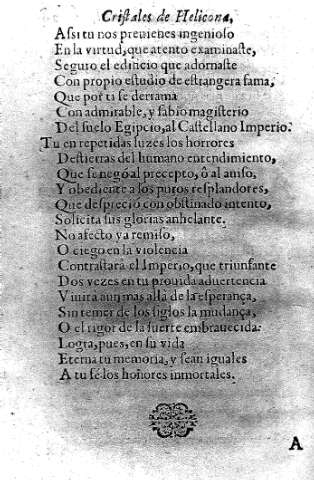 Cristales de Helicona,
Assi tu nos preuienes ingenioso
En la virtud, que atento examinaste,
Seguro el edificio que adornaste
Con propio estudio de estrangera fama,
Que por ti se derrama
Con admirable, y sabio magisterio
Del suelo Egipcio, al Castellano Imperio.
Tu en repetidas luzes los horrores
Destierras del humano entendimiento,
Que se negó al precepto, ô al auiso,
Y obediente a los puros resplandores,
Que despreció con obstinado intento,
Solicita sus glorias anhelante.
No afecto ya remiso,
O ciego en la violencia
Contrastarà el Imperio, que triunfante
Dos vezes en tu prouida aduertencia
Viuira aun mas allà de la esperança,
Sin temer de los siglos la mudança,
O el rigor de la suerte embrauecida.
Logra, pues, en su vida
Eterna tu memoria, y sean iguales
A tu fè los honores inmortales.
A